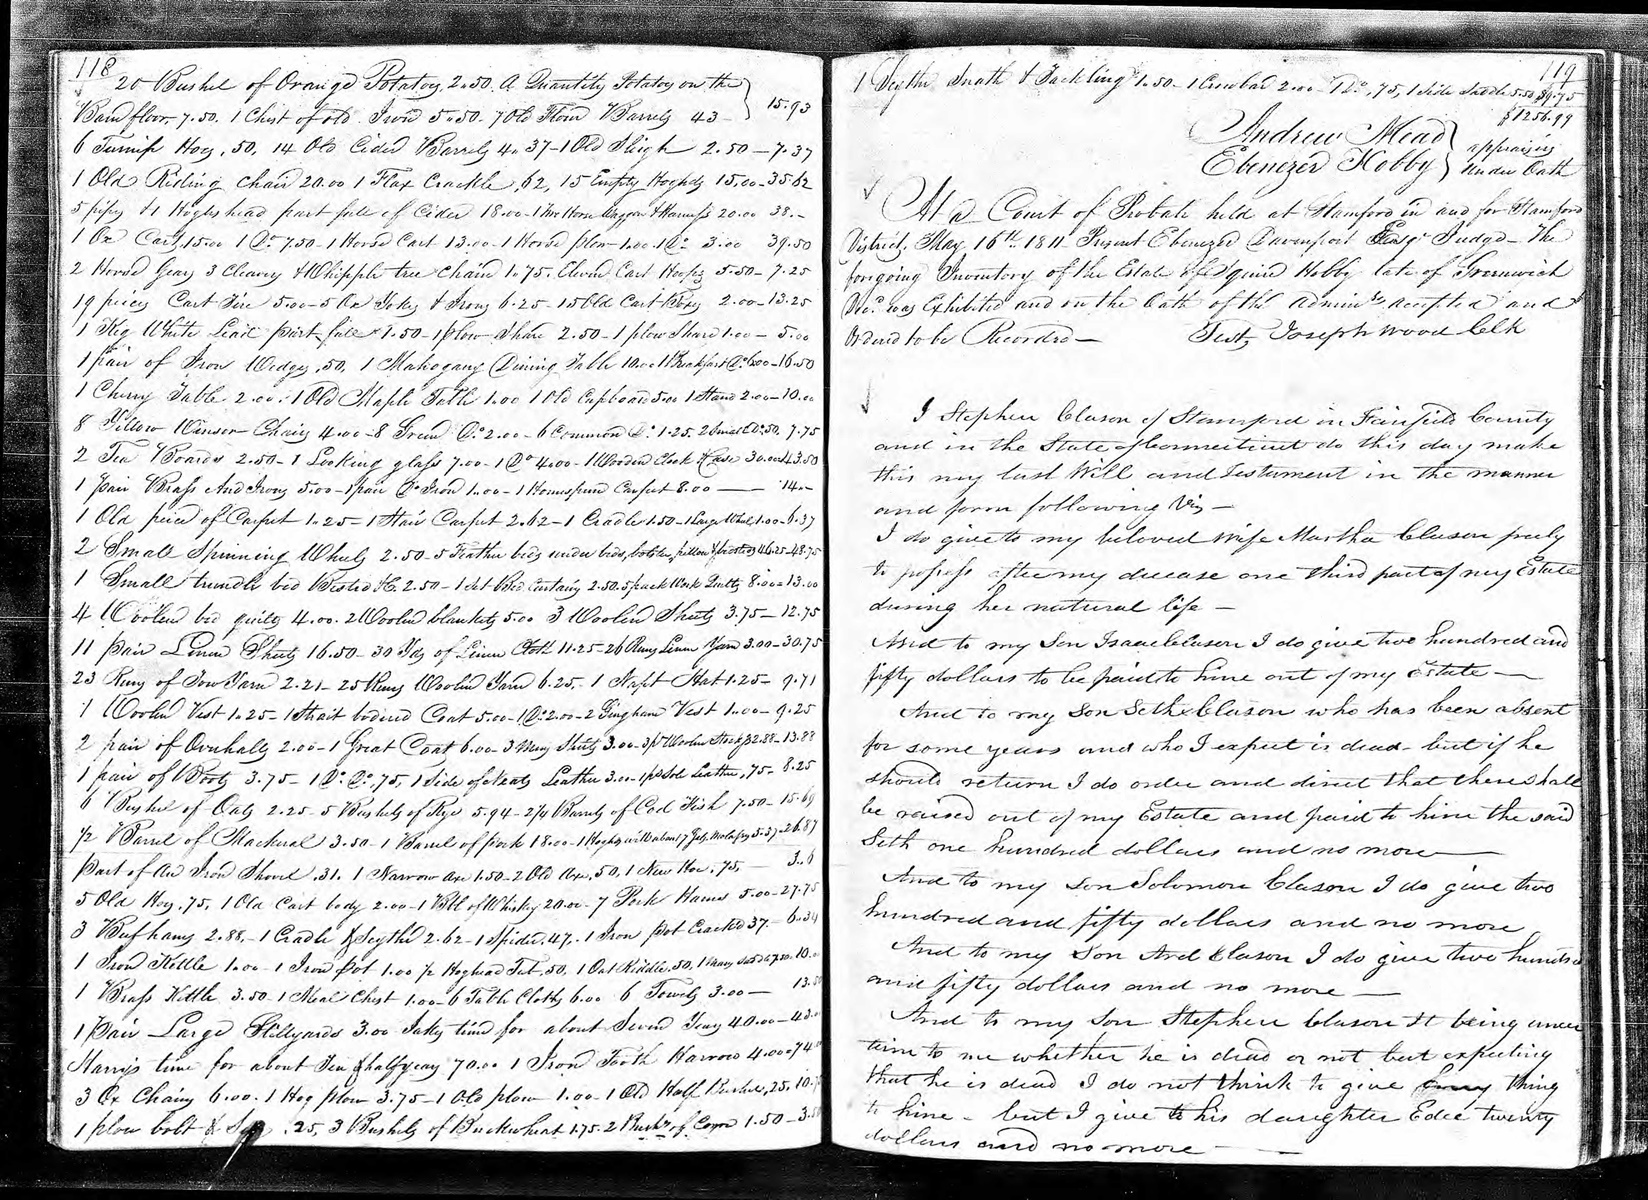 118
20 Bushel of Orange Potatoes 2.50. A Quantity Potatoes on the
Barn floor 7.50. 1 Chest of old Iron 5.50. 7 Old Flour Barrels 43 - 15.93
6 Turnip Hoes, 50, 14 Old Cider Barrels 4.37 - 1 Old Sleigh 2.50 - 7.37
1 Old Riding Chair 20.00 1 Flax Crackle, 62, 15 Empty Hoghds 15.00 - 35 62
5 pipes & 1 Hogleshead part full of Cider 18.00 - 1 two Horse Waggon & Harness 20.00 38.-
1 Ox Cart, 15.00 1 Do 7.50 - 1 Horse Cart 13.00 - 1 Horse plow 1.00 - 1 Do 3.00 39.50
2 Horse Gear 3 Cleaves & Whipple tree chain 1.75. Eleven Cart Hoops 5.50 - 7.25
19 pieces Cart Tire 5.00 - 5 Ox Yokes & Irons 6.25 - 15 Old Cart Boxes 2.00 - 13.25
1 Keg White Lead part full 1.50 - 1 plow Share 2.50 - 1 plow Share 1.00 - 5.00
1 pair of Iron Wedges, 50, 1 Mahogany Dining Table 10.00 1 Breakfast Do 6.00 - 16.50
1 Cherry Table 2.00. 1 Old Maple Table 1.00 1 Old Cupboard 5.00 1 Stand 2.00 - 10.00
8 Yillow Winsor Chairs 4.00 - 8 Green Do 2.00 - 6 Common Do 1.25. 2 Small Do 50. 7.75
2 Tea Boards 2.50 - 1 Looking glass 7.00 - 1 Do 4.00 - 1 Wooden Clock & Case 30.00 43.50
1 pair Brass And Irons 5.00 - 1 pair Do Iron 1.00 - 1 Homespun Carpet 8.00 - 14.-
1 Old piece of Carpet 1.25 - 1 Stair Carpet 2.62 - 1 Cradle 1.50 - 1 Large Wheel 1.00 - 6.37
2 Small Spinning Wheels 2.50 - 5 Feather beds under beds, bolsters, pillows & bedsteds 46.25 - 48.75
1 Small trundle bed Bestead &c. 2.50 - 1 Set Bed Curtains 2.50. 5 pack Work Quilts 8.00 - 13.00
4 Woolen bed quilts 4.00. 2 Woolen blankets 5.00 3 Woolen Sheets 3.75 - 12.75
11 pair Linen Sheets 16.50 - 30 Yds of Linen Cloth 11.25 - 26 Runs Linen Yarn 3.00 - 30.75
23 Runs of Tow Yarn 2.21 - 25 Runs Woolen Yarn 6.25 - 1 Napt Hat 1.25 - 9.71
1 Woolen Vest 1.25 - 1 Strait bodied Coat 5.00 - 1 Do 2.00 - 2 Gingham Vest 1.00 - 9.25
2 pair of Overhalls 2.00 - 1 Great Coat 6.00 - 3 Shirts 3.00 - 3 pr Woolen Stockgs 2.88 - 13.88
1 pair of Boots 3.75 - 1 Do Do, 75, 1 Side of Neats Leather 3.00 - 1 ps Sole Leather, 75 - 8.25
6 Bushel of Oats 2.25 - 5 Bushels of Rye 5.94 - 2/4 Barrels of Cod Fish 7.50 - 15.69
1/2 Barrel of Mackerel 3.50 - 1 Barrel of pork 18.00 - 1 Hoghd with about 17 Gals Molasses 5.37 - 26.87
part of an Iron Shovel .31. 1 Narrow axe 1.50 - 2 Old Axes, 50, 1 New Hoe, 75, - 3.6
5 Old Hoes, 75, 1 Old Cart body 2.00 - 1 Bbl of Whisky 20.00 - 7 Pork Hams 5.00 - 27.75
3 Beef hams 2.88, - 1 Cradle & Scythe 2.62 - 1 Spider. 47, 1 Iron pot Cracked 37. - 6.34
1 Iron Kettle 1.00 - 1 Iron pot 1.00 1/2 Hoghead Tub, 50, 1 Oat Riddle, 50, 1 7.00 - 10.00
1 Brass Kettle 3.50 - 1 Meal Chest 1.00 - 6 Table Cloths 6.00 6 Towels 3.00 - 13.50
1 Pair Large Stillyards 3.00 time for about Seven Years 40.00 - 43.00
Harrys time for about Ten & half years 70.00 1 Iron Tooth Harrow 4.00 - 74
3 Ox Chains 6.00. 1 Hog plow 3.75 - 1 Old plow 1.00 - 1 Old Half Bushel, 25, 10.
1 plow bolt & .25, 3 Bushels of Buckwheat 1.75. 2 Bushs of Corn 1.50 - 3.50
119
1 Scythe Snath & Tackling 1.50 - 1 Crowbar 2.00 - 1 Do, 75, 1 Side Saddle 5.50 $9.75
$1256.99
Andrew Mead
Ebenezer Hobby
appraisers
under Oath
At a Court of Probate held at Stamford in and for Stamford
District, May 16th. 1811 Present Ebenezer Davenport Esqr Judge - The
foregoing Inventory of the Estate of Squire Hobby late of Greenwich
Decd. was Exhibited and on the Oath of the Adminrs accepted and
Ordered to be Recorded - Test, Joseph Wood Clk
I Stephen Clason of Stamford in Fairfield County
and in the State of Connecticut do this day make
this my last Will and Testament in the manner
and form following Viz -
I do give to my beloved Wife Martha Clason freely
to possess after my decease one third part of my Estate
during her natural life -
And to my Son Isaac Clason I do give two hundred and
fifty dollars to be paid to hime out of my Estate -
And to my Son Seth Clason who has been absent
for some years and who I expect is dead - but if he
should return I do order and direct that there shall
be raised out of my Estate and paid to hime the said
Seth one hundred dollars and no more -
And to my Son Solomon Clason I do give two
hundred and fifty dollars and no more
And to my Son Clason I do give two hundred
and fifty dollars and no more -
And to my Son Stephen Clason It being uncer
tain to me whether he is dead or not but expecting
that he is dead I do not think to give thing
to hime - but I give to his daughter Edee twenty
dollars and no more -